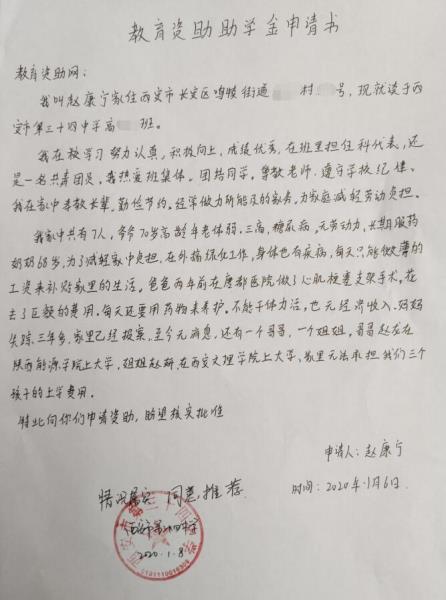 教育资助助学金申请书
教育资助网:
我叫赵康宁家住西安市长安区鸣犊街道 村 号,现就读于西
安市第三十四中学高 班。
我在校学习努力认真,积极向上,成绩优秀,在班里担任科代表,还
是一名共青团员。我热爱班集体。团结同学。尊敬老师。遵守学校纪律。
我在家中孝敬长辈,勤俭节约。经常做力所能及的家务。为家庭减轻劳动负担。
我家中共有7人,爷爷70岁高龄年老体弱。三高,糖尿病。无劳动力,长期服药
奶奶68岁,为了减轻家中负担,在外搞绿化工作,身体也有疾病,每天只能做薄的
工资来补贴家里的生活。爸爸两年前在唐都医院做了心肌梗塞支架手术。花
去了巨额的费用。每天还要用药物来养护。不能干体力活,也无经济收入。妈妈
失踪三年多,家里已经报案,至今无消息,还有一个哥哥,一个姐姐,哥哥赵龙在
陕西能源学院上大学,姐姐赵妍,在西安文理学院上大学,家里无法承担我们三个
孩子的上学费用。
特此向你们申请资助,盼望核实批准
申请人:赵康宁
时间:2020年1月6日.
情况属实 同意推荐
西安市第三十四中学
2020.1.8